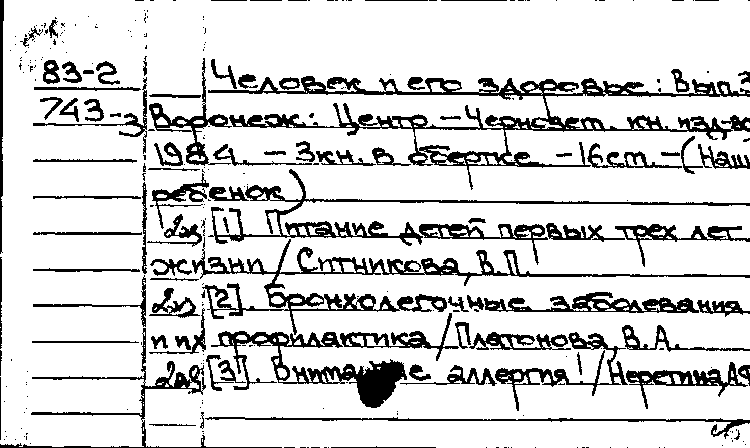 83-2 Человек и его здоровье: Вып.3
743-3 Воронеж: Центр.-Чернозем. кн. изд-во
1984. - 3кн. в обертке - 16см. - (Наш
ребенок)
2из [1]. Питание детей первых трех лет
жизни / Ситникова, В.П.
2из [2]. Бронхолегочные заболевания
и их профилактика / Платонова, В.А.
[3]. Внимание аллергия! / Неретина, АФ